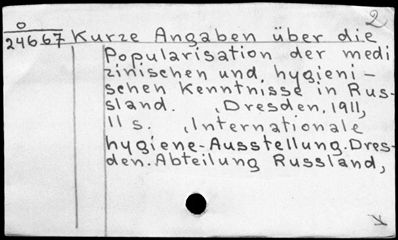 2
O
24667 Kurze Angaben über die
Popularisation der medi
zinischen und hygieni-
schen Kenntnisse in Rus-
sland. Dresden, 1911,
11 s. Internationale
hygiene-Ausstellung. Dres-
den. Abteilung Russland,